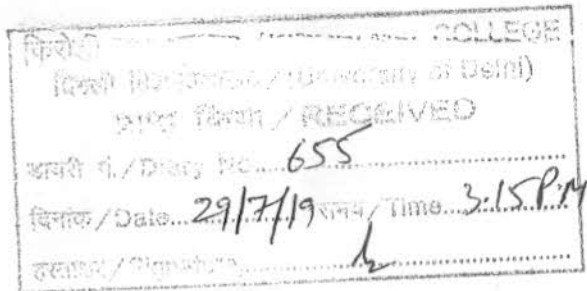 COLLEGE
दिल्ली (University of Delhi)
प्राप्त किया / RECEIVED
डायरी नं./Diary No. 655
दिनांक/Date 29/7/19 समय/Time 3:15 P.M
हस्ताक्षर/Signature